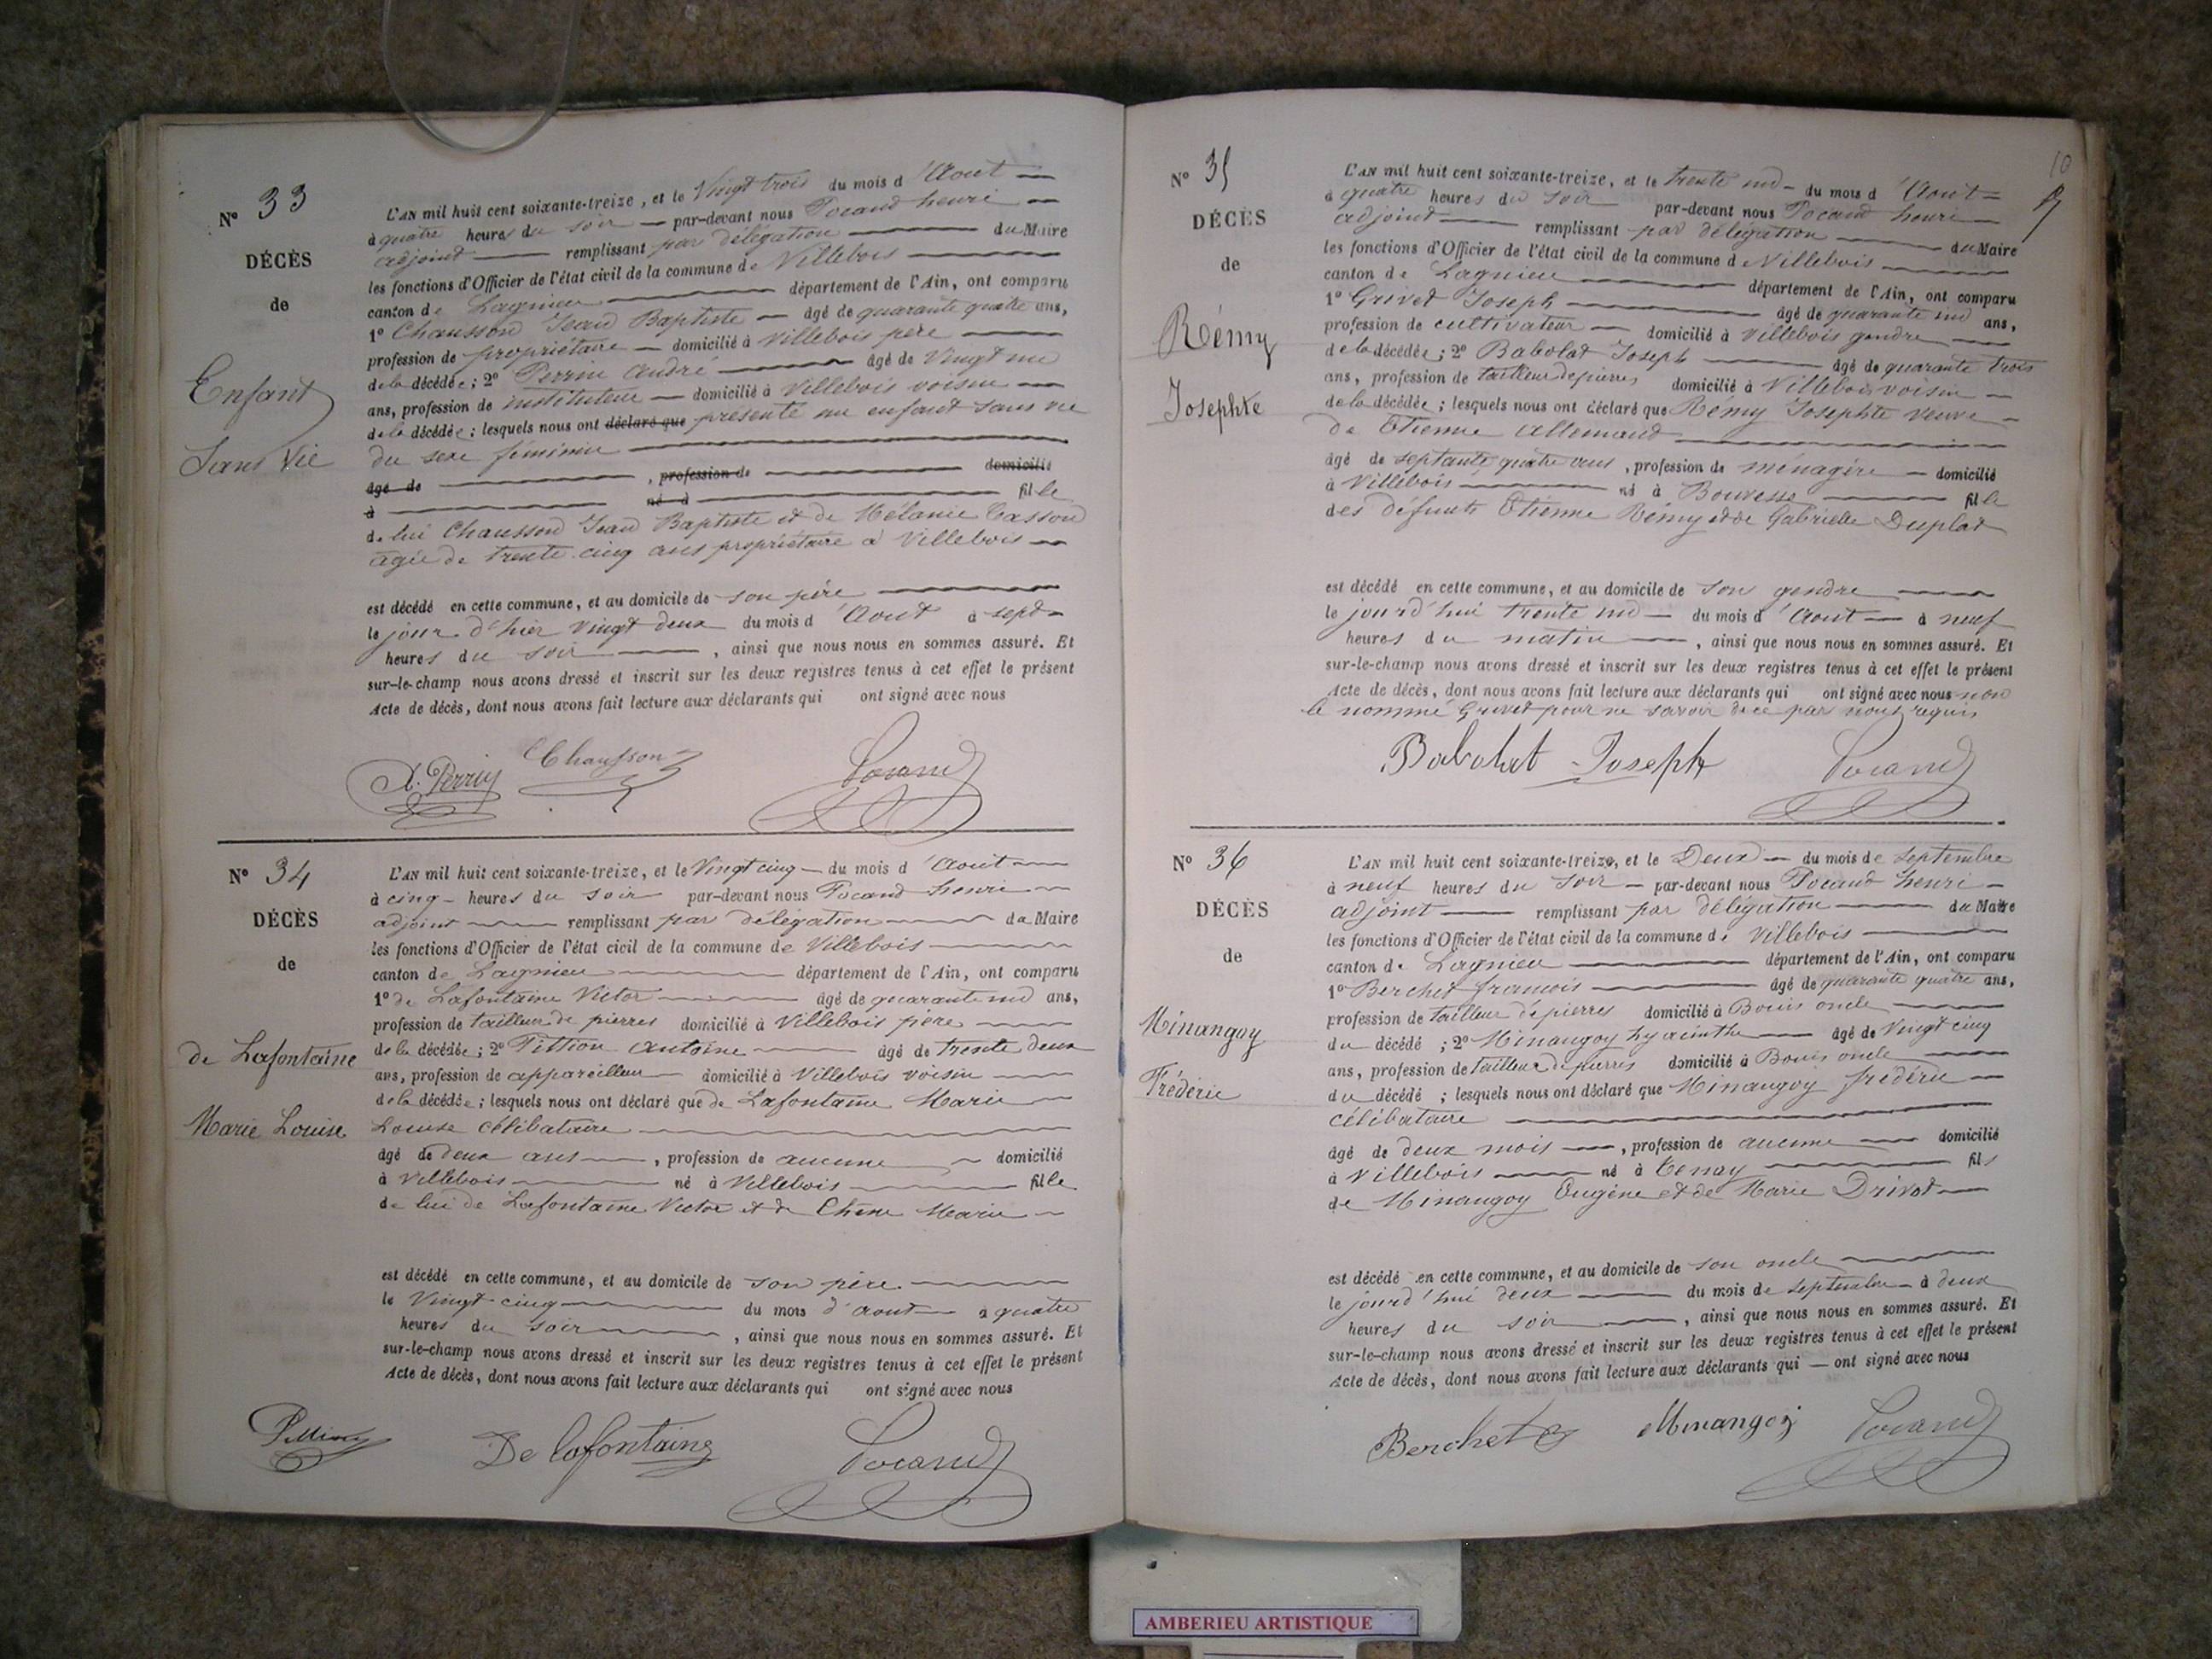 N° 33
DÉCÈS
de
Enfant
Sans Vie
L'AN mil huit cent soixante-treize, et le Vingt trois du mois d'Aout
à quatre heures du soir par-devant nous Pocand henri
adjoint remplissant par délégation du Maire
les fonctions d'Officier de l'état civil de la commune de Villebois
canton de Lagnieu département de l'Ain, ont comparu
1° Chausson Jean Baptiste âgé de quarante quatre ans,
profession de propriétaire domicilié à Villebois père
de la décédée; 2° Perrin André âgé de Vingt un
ans, profession de instituteur domicilié à Villebois voisin
de la décédée; lesquels nous ont déclaré que présenté un enfant sans vie
du sexe féminin
âgé de , profession de domicilié
à né à fille
de lui Chausson Jean Baptiste et de Mélanie Casson
agée de trente cinq ans propriétaire à Villebois
est décédé en cette commune, et au domicile de son père
le jour d'hier Vingt deux du mois d'Aout à sept
heures du soir , ainsi que nous nous en sommes assuré. Et
sur-le-champ nous avons dressé et inscrit sur les deux registres tenus à cet effet le présent
Acte de décès, dont nous avons fait lecture aux déclarants qui ont signé avec nous
A. Perrin Chausson Pocand
N° 34
DÉCÈS
de
de Lafontaine
Marie Louise
L'AN mil huit cent soixante-treize, et le Vingt cinq du mois d'Aout
à cinq heures du soir par-devant nous Pocand henri
adjoint remplissant par délégation du Maire
les fonctions d'Officier de l'état civil de la commune de Villebois
canton de Lagnieu département de l'Ain, ont comparu
1° de Lafontaine Victor âgé de quarante un ans,
profession de tailleur de pierres domicilié à Villebois père
de la décédée; 2° Pittion Antoine âgé de trente deux
ans, profession de appareilleur domicilié à Villebois voisin
de la décédée; lesquels nous ont déclaré que de Lafontaine Marie
Louise célibataire
âgé de deux ans , profession de aucune domicilié
à Villebois né à Villebois fille
de lui de Lafontaine Victor et de Chêne Marie
est décédé en cette commune, et au domicile de son père
le Vingt cinq du mois d'Aout à quatre
heures du soir , ainsi que nous nous en sommes assuré. Et
sur-le-champ nous avons dressé et inscrit sur les deux registres tenus à cet effet le présent
Acte de décès, dont nous avons fait lecture aux déclarants qui ont signé avec nous
Pittion De lafontaine Pocand
10
N° 35
DÉCÈS
de
Rémy
Josephte
L'AN mil huit cent soixante-treize, et le trente un du mois d'Aout
à quatre heures du soir par-devant nous Pocand henri
adjoint remplissant par délégation du Maire
les fonctions d'Officier de l'état civil de la commune de Villebois
canton de Lagnieu département de l'Ain, ont comparu
1° Grivet Joseph âgé de quarante un ans,
profession de cultivateur domicilié à Villebois gendre
de la décédée; 2° Babolat Joseph âgé de quarante trois
ans, profession de tailleur de pierres domicilié à Villebois voisin
de la décédée; lesquels nous ont déclaré que Rémy Josephte veuve
de Etienne Allemand
âgé de septante quatre ans, profession de ménagère domicilié
à Villebois né à Bouvesse fille
des défunts Etienne Rémy et de Gabrielle Duplat
est décédé en cette commune, et au domicile de son gendre
le jourd'hui trente un du mois d'Aout à neuf
heures du matin , ainsi que nous nous en sommes assuré. Et
sur-le-champ nous avons dressé et inscrit sur les deux registres tenus à cet effet le présent
Acte de décès, dont nous avons fait lecture aux déclarants qui ont signé avec nous non
le nommé Grivet pour ne savoir de ce par nous requis
Babolat Joseph Pocand
N° 36
DÉCÈS
de
Minangoy
Frédéric
L'AN mil huit cent soixante-treize, et le Deux du mois de Septembre
à neuf heures du soir par-devant nous Pocand henri
adjoint remplissant par délégation du Maire
les fonctions d'Officier de l'état civil de la commune de Villebois
canton de Lagnieu département de l'Ain, ont comparu
1° Berchet francois âgé de quarante quatre ans,
profession de tailleur de pierres domicilié à Bouis oncle
du décédé ; 2° Minangoy hyacinthe âgé de Vingt cinq
ans, profession de tailleur de pierres domicilié à Bouis oncle
du décédé ; lesquels nous ont déclaré que Minangoy frédéric
célibataire
âgé de deux mois , profession de aucune domicilié
à Villebois né à Tenay fils
de Minangoy Eugène et de Marie Drivet
est décédé en cette commune, et au domicile de son oncle
le jourd'hui deux du mois de septembre à deux
heures du soir , ainsi que nous nous en sommes assuré. Et
sur-le-champ nous avons dressé et inscrit sur les deux registres tenus à cet effet le présent
Acte de décès, dont nous avons fait lecture aux déclarants qui ont signé avec nous
Berchet Minangoy Pocand
AMBERIEU ARTISTIQUE